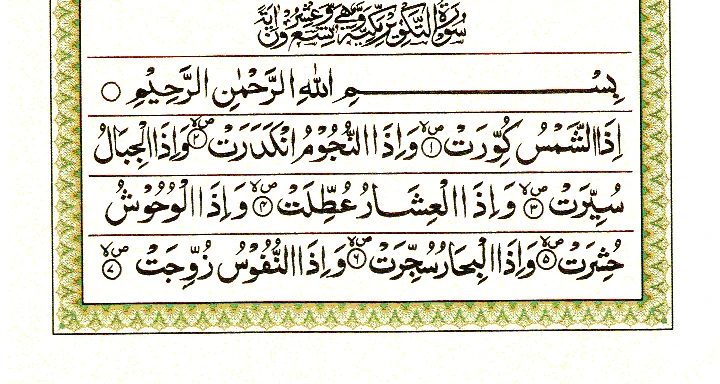 سُوْرَةُ التَّكْوِيْرِ مَكِّيَّةٌ وَّهِيَ تِسْعٌ وَّعِشْرُوْنَ اٰيَةً
بِسْمِ اللّٰهِ الرَّحْمٰنِ الرَّحِيْمِ ○
اِذَا الشَّمْسُ كُوِّرَتْ ۪ۙ﴿۱﴾ وَاِذَا النُّجُوْمُ انْكَدَرَتْ ۪ۙ﴿۲﴾ وَاِذَا الْجِبَالُ
سُيِّرَتْ ۪ۙ﴿۳﴾ وَاِذَا الْعِشَارُ عُطِّلَتْ ۪ۙ﴿۴﴾ وَاِذَا الْوُحُوْشُ
حُشِرَتْ ۪ۙ﴿۵﴾ وَاِذَا الْبِحَارُ سُجِّرَتْ ۪ۙ﴿۶﴾ وَاِذَا النُّفُوْسُ زُوِّجَتْ ۪ۙ﴿۷﴾